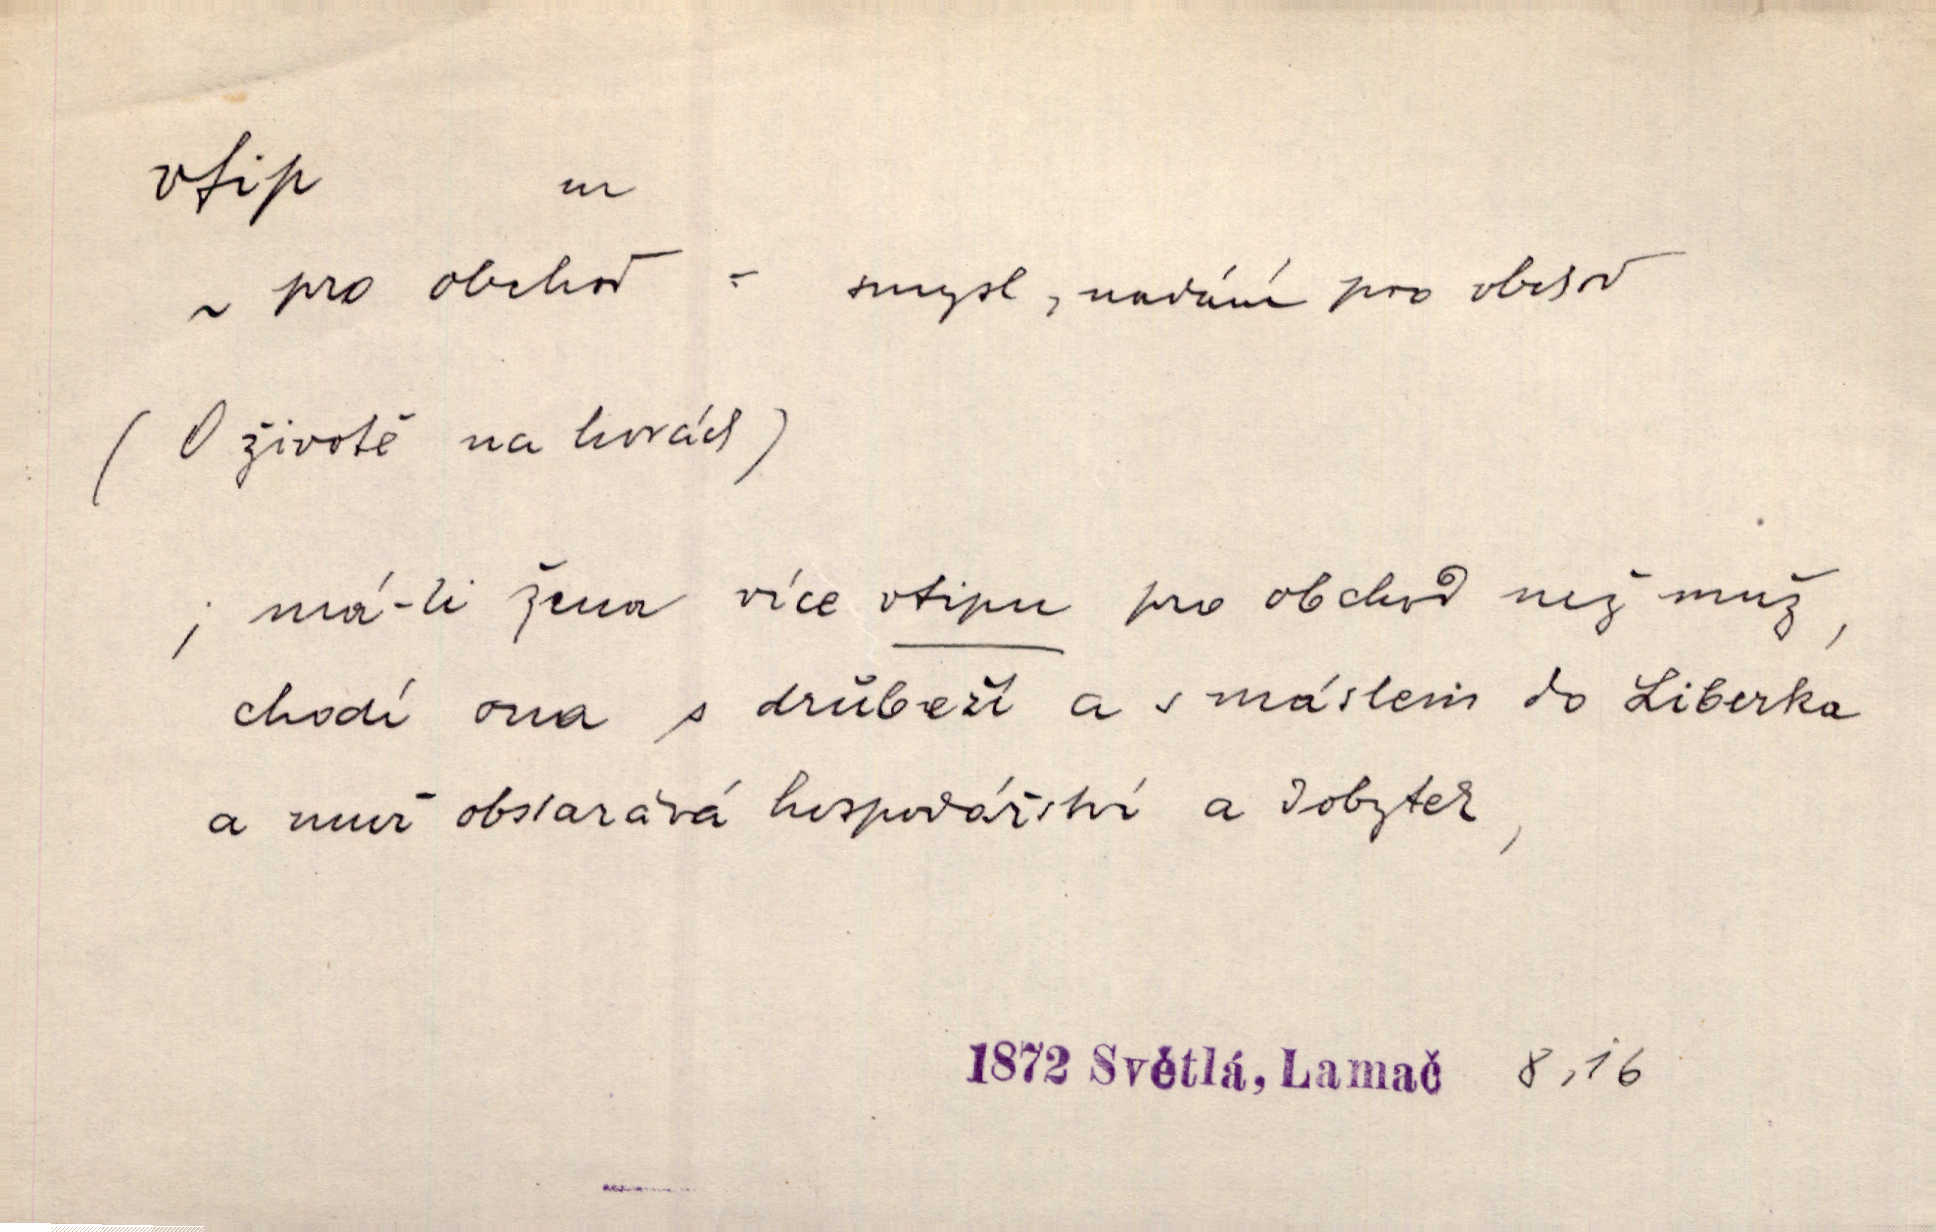 vtip m
~ pro obchod = smysl, nadání pro obchod
( O životě na horách )
; má-li žena více vtipu pro obchod než muž,
chodí ona s drůbeží a s máslem do Liberka
a muž obstarává hospodářství a dobytek,
1872 Světlá, Lamač 8,16